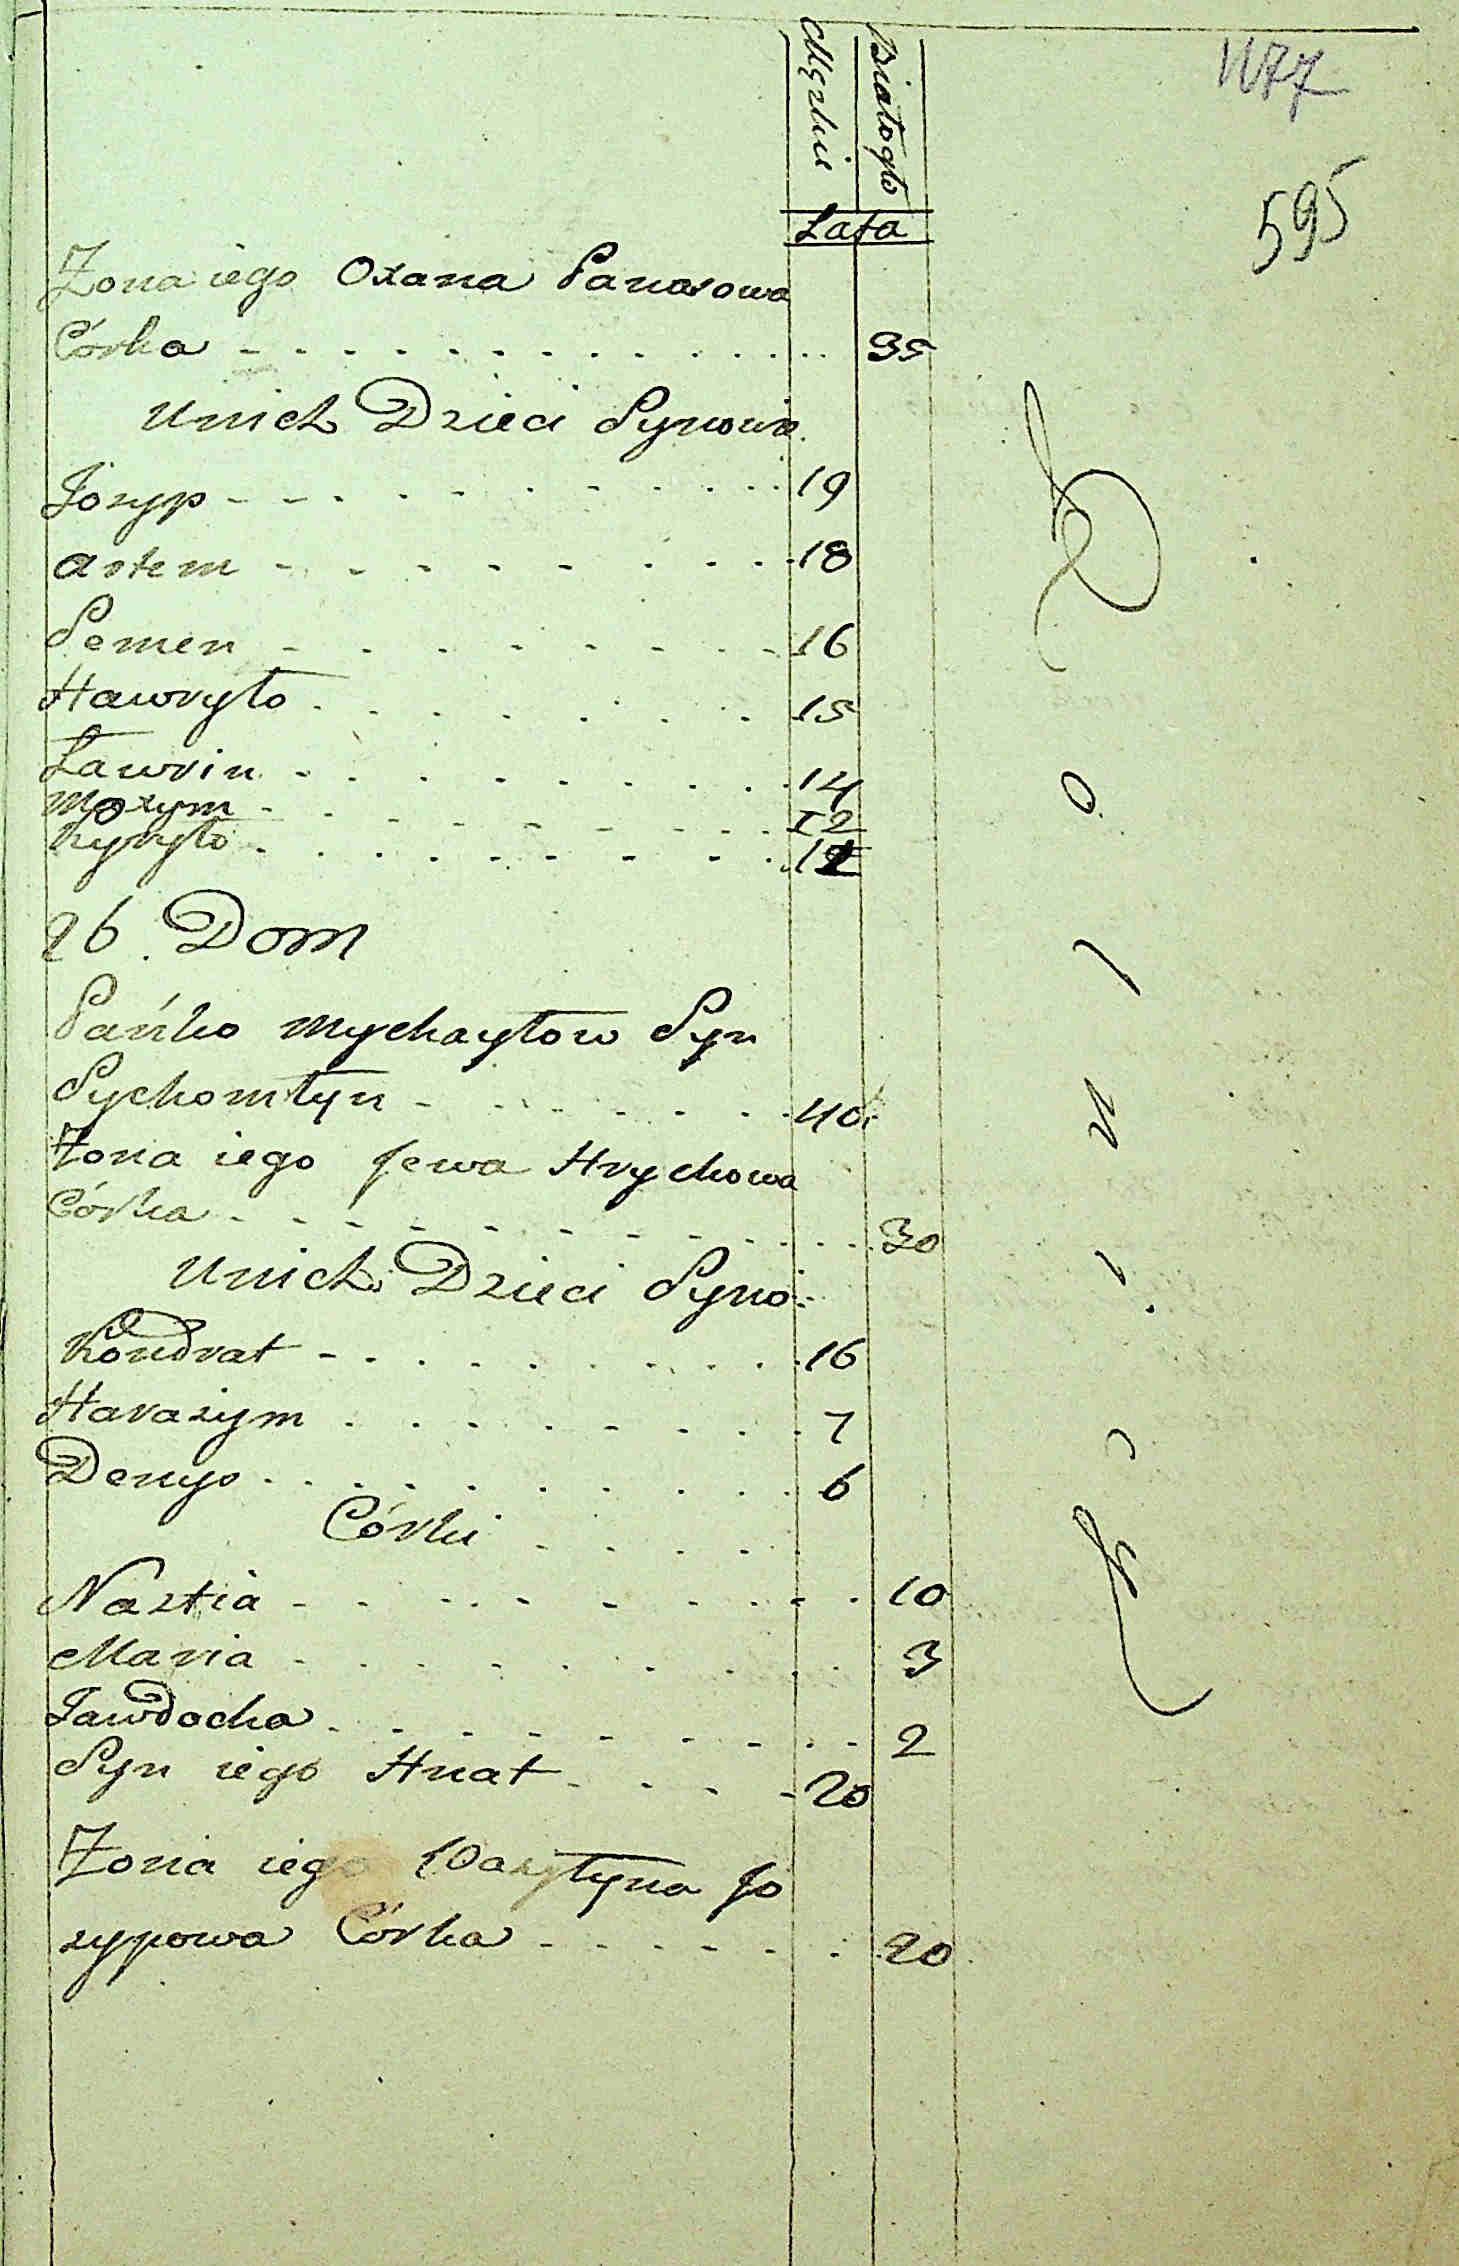 Męzkie Białogło
Lata
595
Zona iego Oxana Panasowa
Córka 35
Unich Dzieci Synowie
Jozyp 19
Artem 18
Semen 16
Hawryło 15
Ławrin 14
Moxym 12
Kyryło
26. Dom
Pańko Mychayłow Syn
Sychomłyn 40
Zona iego Jewa Hrychowa
Córka 30
Unich Dzieci Syno:
Kondrat 16
Harazym 7
Denys 6
Córki
Nastia 10
Maria 3
Jawdocha 2
Syn iego Hnat 20
Zona iego Wasyłyna Jo
zypowa Córka 20